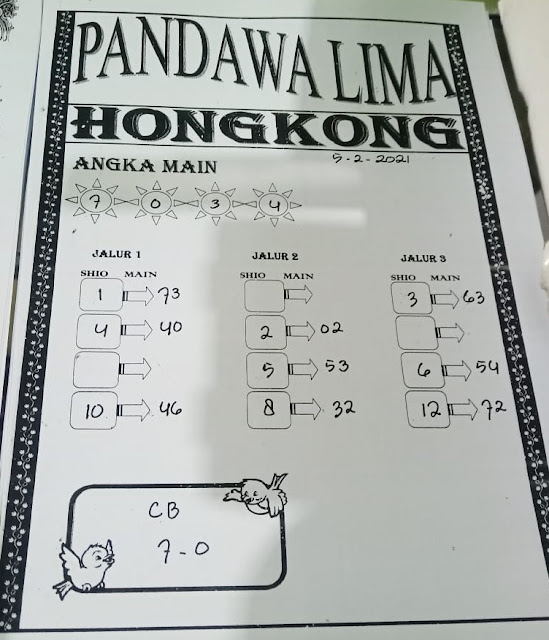 PANDAWA LIMA
HONGKONG
5-2-2021
ANGKA MAIN
7 0 3 4
JALUR 1 JALUR 2 JALUR 3
SHIO MAIN SHIO MAIN SHIO MAIN
1 73 3 63
4 40 2 02
5 53 6 54
10 46 8 32 12 72
CB
7-0